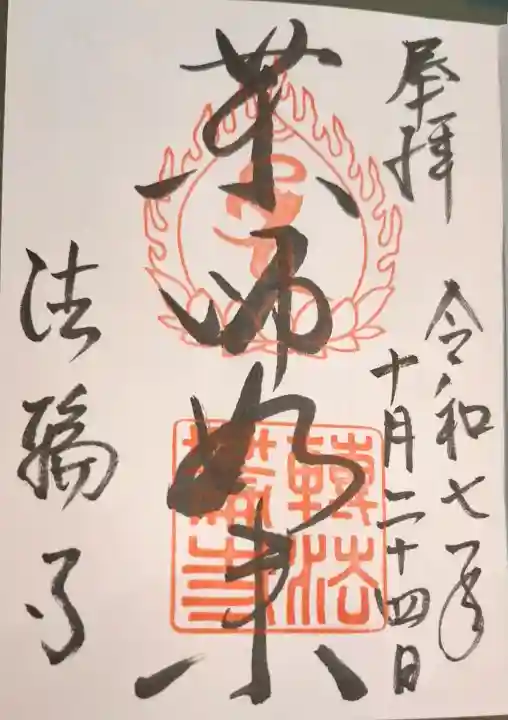 奉拝
令和七年
十月二十四日
薬師如来
法輪寺
轉法